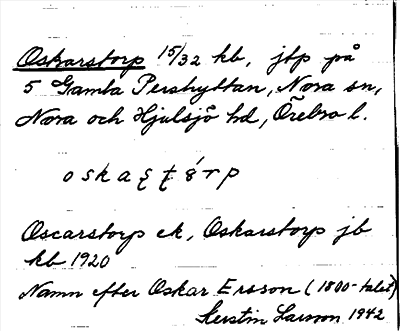 Oskarstorp 15/32 kb, jtp på
5 Gamla Pershyttan, Nora sn,
Nora och Hjulsjö hd, Örebro l.
oskaʂʈórp
Oscarstorp ek, Oskarstorp jb
kb 1920
Namn efter Oskar Ersson (1800-talet)
Kerstin Larsson 1942